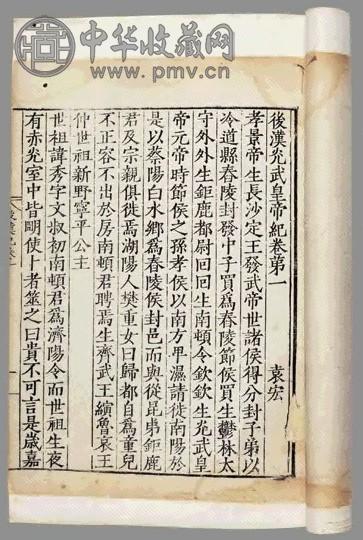 中华收藏网
www.pmv.cn
後漢光武皇帝紀卷第一
袁宏
孝景帝生長沙定王發武帝世諸侯得分封子弟以
冷道縣舂陵封發中子買爲舂陵節侯買生鬱林太
守外外生鉅鹿都尉回回生南頓令欽欽生光武皇
帝元帝時節侯之孫孝侯以南方卑濕請徙南陽於
是以蔡陽白水鄉爲舂陵侯封邑而與從昆弟鉅鹿
君及宗親俱徙焉湖陽人樊重女曰歸都自爲童兒
不正容不出於房南頓君聘焉生齊武王縯魯哀王
仲世祖新野寧平公主
世祖諱秀字文叔初南頓君爲濟陽令而世祖生夜
有赤光室中皆明使卜者筮之曰貴不可言是歲嘉